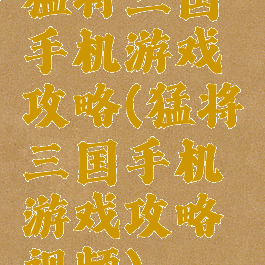 猛将三国
手机游戏
攻略(猛将
三国手机
游戏攻略
视频)